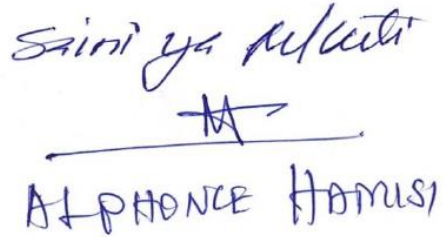 Saini ya
ALPHONCE HAMISI